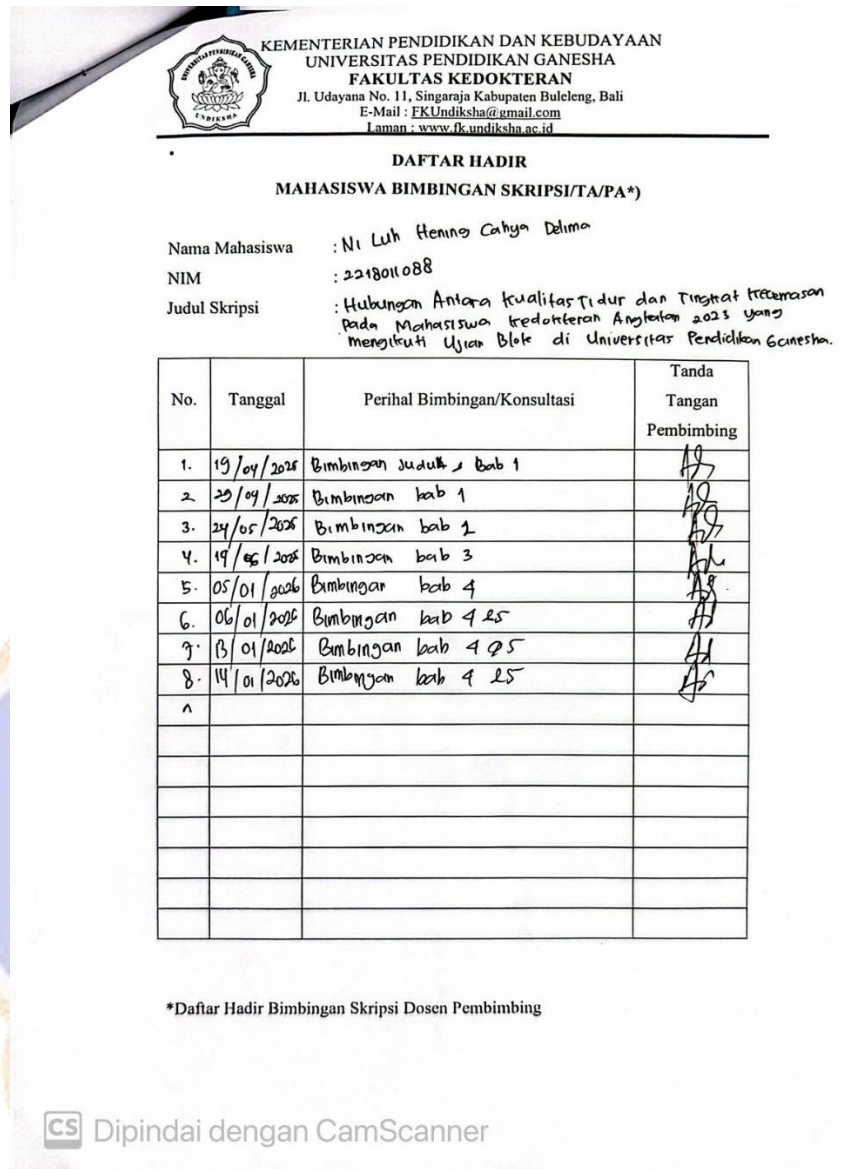 KEMENTERIAN PENDIDIKAN DAN KEBUDAYAAN
UNIVERSITAS PENDIDIKAN GANESHA
FAKULTAS KEDOKTERAN
Jl. Udayana No. 11, Singaraja Kabupaten Buleleng, Bali
E-Mail : FKUndiksha@gmail.com
Laman : www.fk.undiksha.ac.id
UNIVERSITAS PENDIDIKAN GANESHA
UNDIKSHA
DAFTAR HADIR
MAHASISWA BIMBINGAN SKRIPSI/TA/PA*)
Nama Mahasiswa : Ni Luh Hening Cahya Delima
NIM : 2218011088
Judul Skripsi : Hubungan Antara Kualitas Tidur dan Tingkat Kecemasan
Pada Mahasiswa Kedokteran Angkatan 2023 yang
mengikuti Ujian Blok di Universitas Pendidikan Ganesha.
No. Tanggal Perihal Bimbingan/Konsultasi Tanda Tangan Pembimbing
1. 19/04/2025 Bimbingan Judul & Bab 1
2. 29/04/2025 Bimbingan bab 1
3. 24/05/2025 Bimbingan bab 2
4. 19/06/2025 Bimbingan bab 3
5. 05/01/2026 Bimbingan bab 4
6. 06/01/2026 Bimbingan bab 4 & 5
7. 13/01/2026 Bimbingan bab 4 & 5
8. 14/01/2026 Bimbingan bab 4 & 5
*Daftar Hadir Bimbingan Skripsi Dosen Pembimbing
CS Dipindai dengan CamScanner